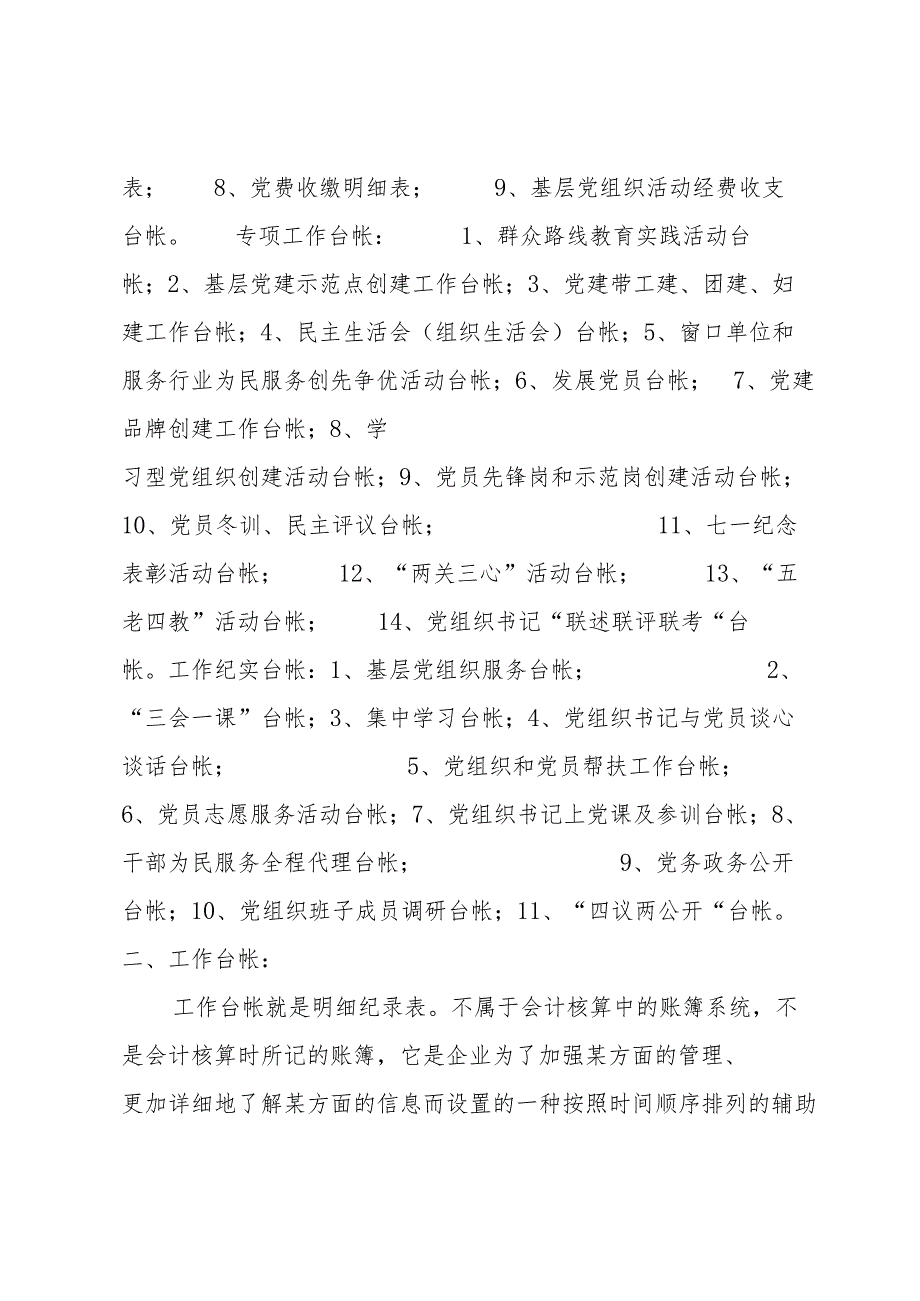 表；　　8、党费收缴明细表；　　　9、基层党组织活动经费收支
台帐。　　专项工作台帐：　　　1、群众路线教育实践活动台
帐；2、基层党建示范点创建工作台帐；3、党建带工建、团建、妇
建工作台帐；4、民主生活会（组织生活会）台帐；5、窗口单位和
服务行业为民服务创先争优活动台帐；6、发展党员台帐；　7、党建
品牌创建工作台帐；8、学
习型党组织创建活动台帐；9、党员先锋岗和示范岗创建活动台帐；
10、党员冬训、民主评议台帐；　　　　　　　　　11、七一纪念
表彰活动台帐；　　　12、“两关三心”活动台帐；　　　13、“五
老四教”活动台帐；　　　14、党组织书记“联述联评联考“台
帐。工作纪实台帐：1、基层党组织服务台帐；　　　　　　　　2、
“三会一课”台帐；3、集中学习台帐；4、党组织书记与党员谈心
谈话台帐；　　　　　　　　5、党组织和党员帮扶工作台帐；
6、党员志愿服务活动台帐；7、党组织书记上党课及参训台帐；8、
干部为民服务全程代理台帐；　　　　　　　　　9、党务政务公开
台帐；10、党组织班子成员调研台帐；11、“四议两公开“台帐。
二、工作台帐：
　　工作台帐就是明细纪录表。不属于会计核算中的账簿系统，不
是会计核算时所记的账簿，它是企业为了加强某方面的管理、
更加详细地了解某方面的信息而设置的一种按照时间顺序排列的辅助